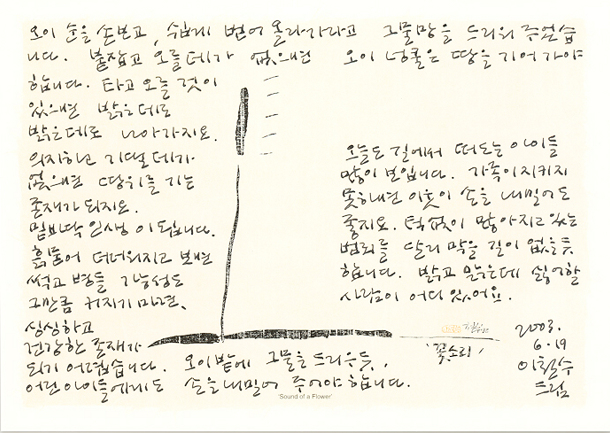 오이 순을 손보고, 쉽게 벋어 올라가라고 그물망을 드리워 주었습
니다. 붙잡고 오를 데가 없으면 오이 넝쿨은 땅을 기어가야
합니다. 타고 오를 것이
있으면 밝은 데로
밝은 데로 나아가지요.
의지하고 기댈 데가
없으면 땅위를 기는
존재가 되지요.
밑바닥 인생이 됩니다.
흙물어 더러워지고 보면
썩고 병들 가능성도
그만큼 커지기 마련.
싱싱하고
건강한 존재가
되기 어렵습니다. 오이밭에 그물을 드리우듯,
어린 아이들에게도 손을 내밀어 주어야 합니다.
오늘도 길에서 떠도는 아이들
많이 보입니다. 가족이 지키지
못하면 이웃이 손을 내밀어도
좋지요. 턱없이 많아지고 있는
범죄를 달리 막을 길이 없을듯
합니다. 밝고 맑은데 싫어할
사람이 어디 있어요.
'꽃소리'
2003.
6.19
이철수
드림
'Sound of a Flower'